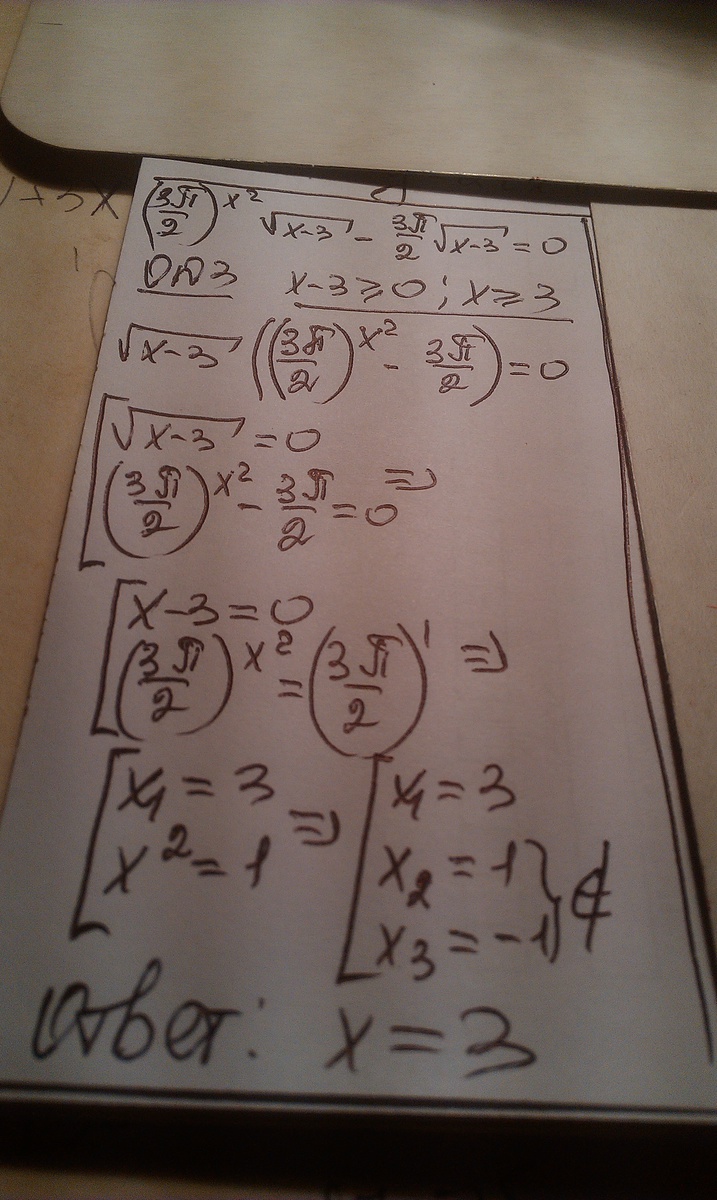 (3π/2)^x² √x-3 - 3π/2 √x-3 = 0
ОДЗ x-3≥0; x≥3
√x-3 ((3π/2)^x² - 3π/2) = 0
[ √x-3 = 0
(3π/2)^x² - 3π/2 = 0 ⇒
[ x-3 = 0
(3π/2)^x² = (3π/2)^1 ⇒
[ x₁ = 3 ⇒ [ x₁ = 3
x² = 1 x₂ = 1 } ∉
x₃ = -1
Ответ: x = 3